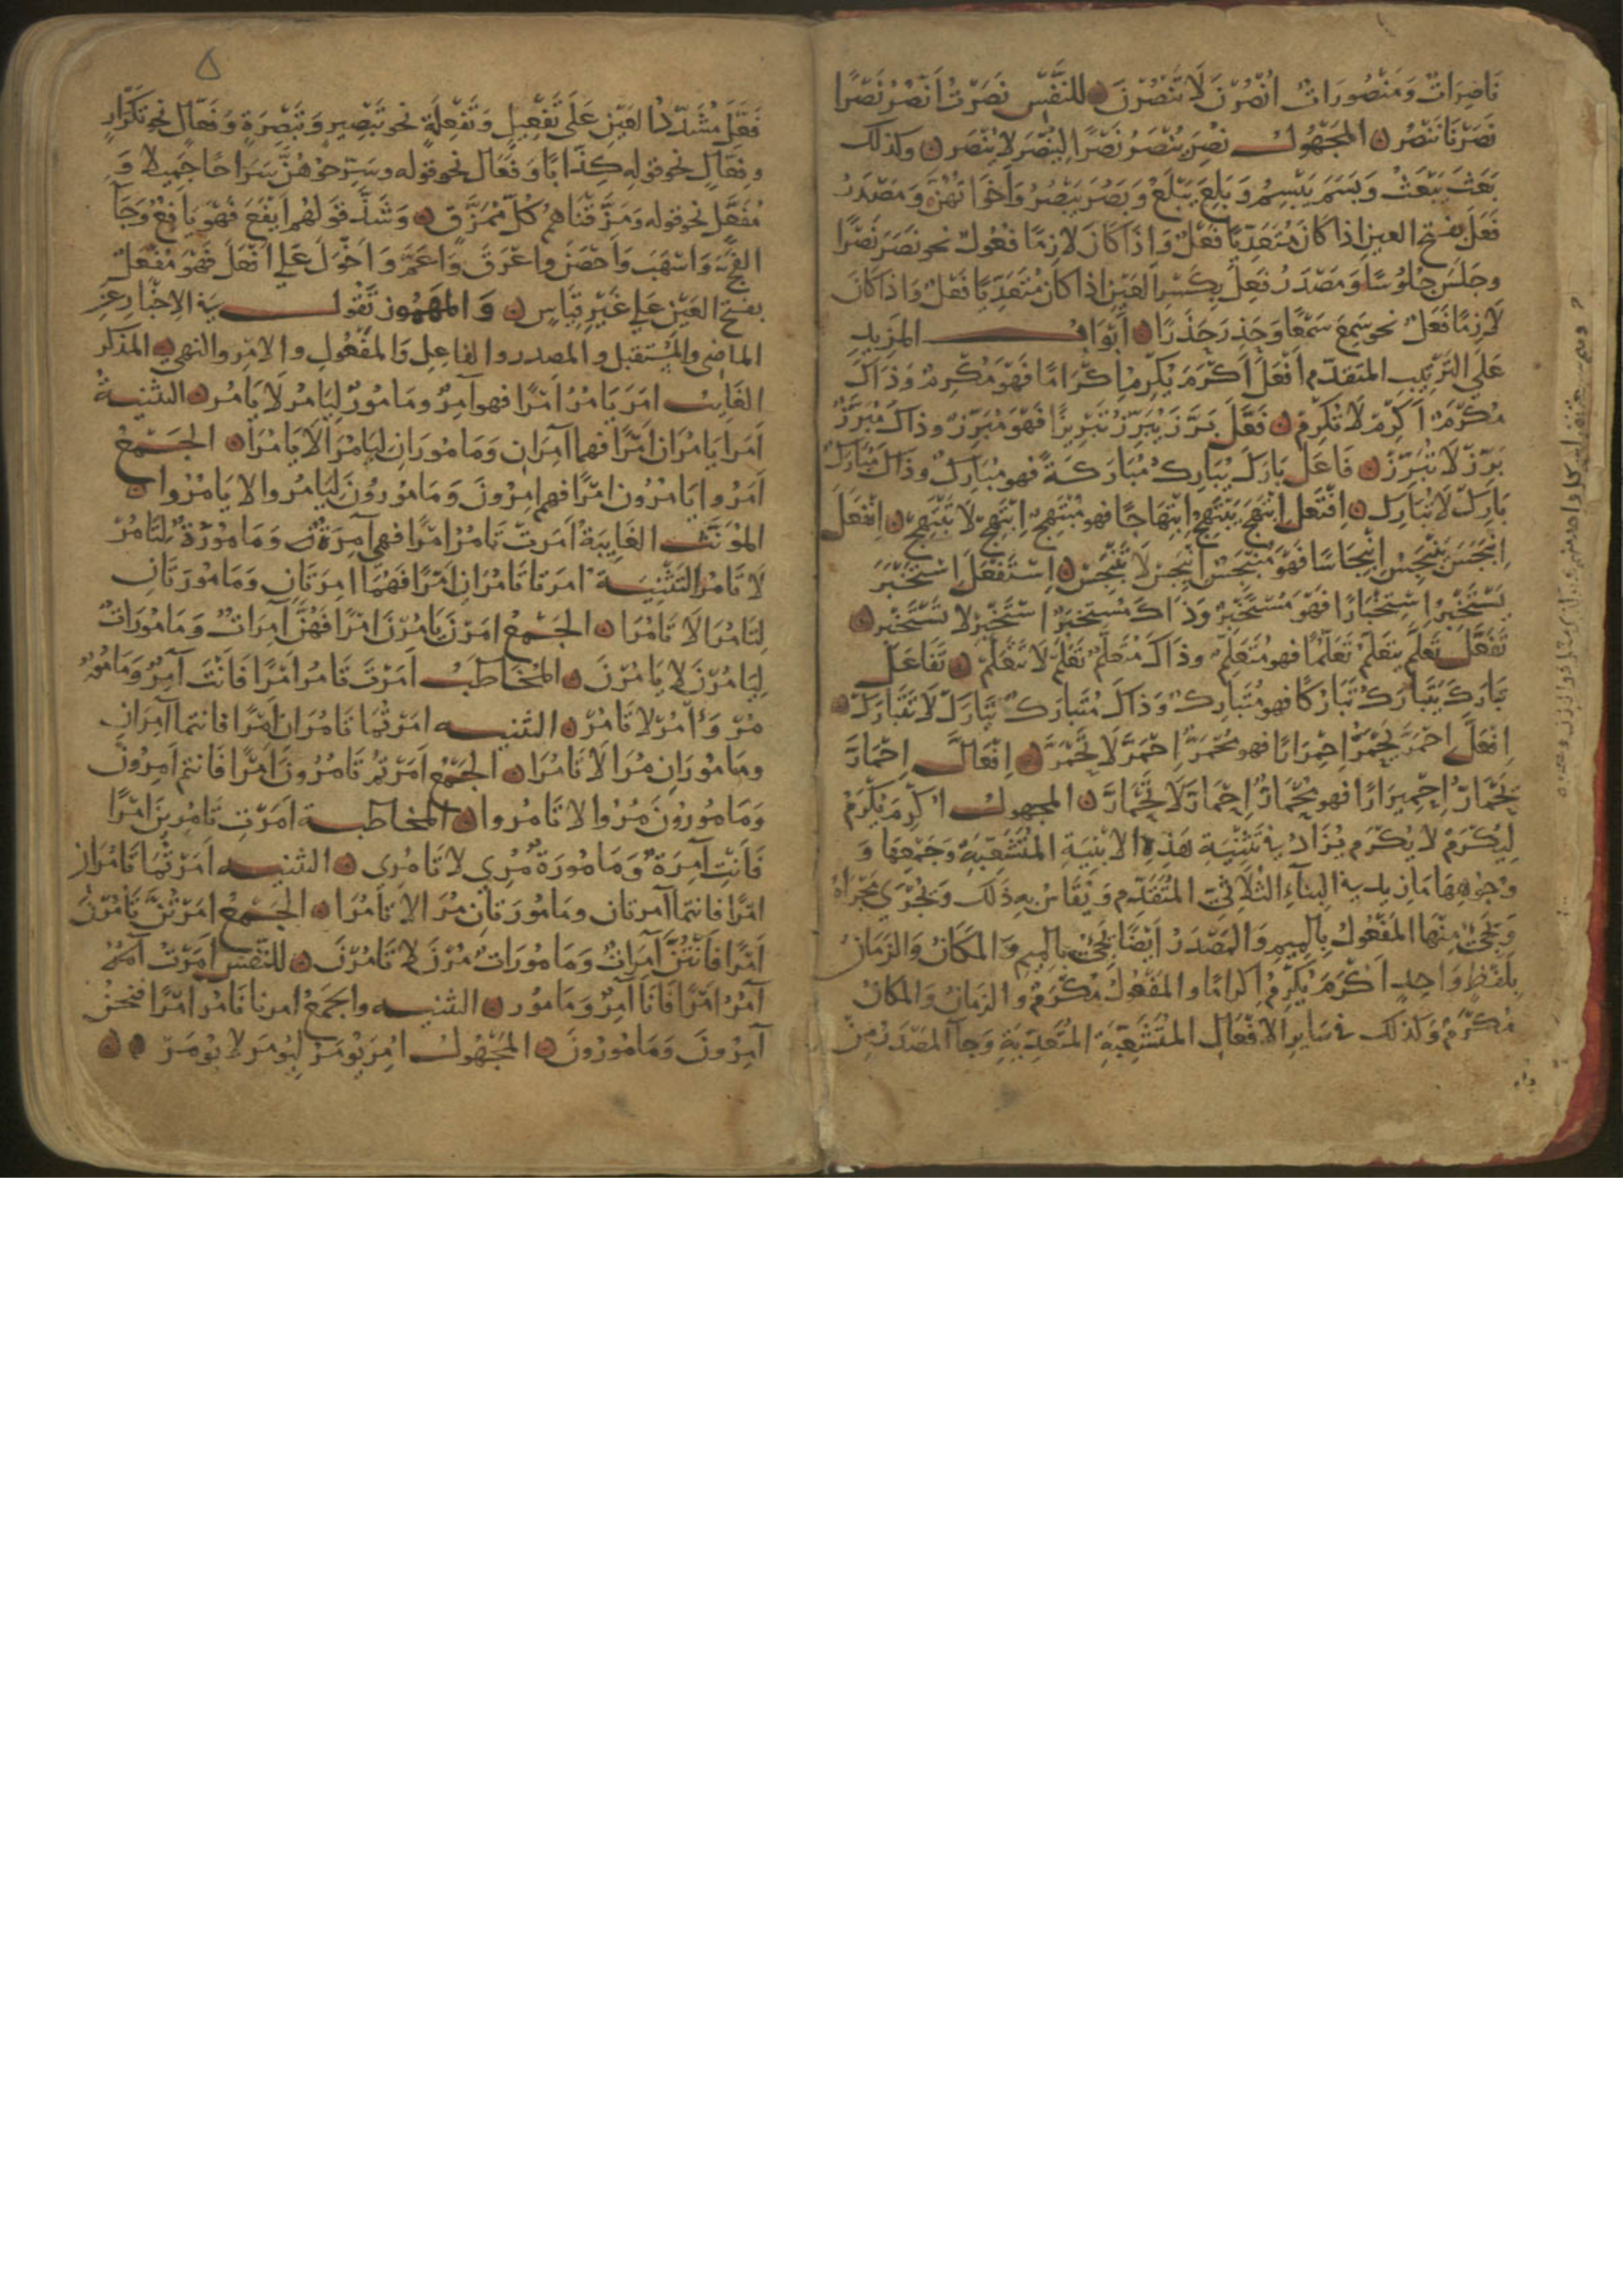 نَاصِرَاتٌ وَمَنْصُورَاتٌ انْصُرْنَ لَا تَنْصُرْنَ ۞ للنَّفْسِ نَصَرْتُ اَنْصُرُ نَصْرًا
نَصَرْنَا نَنْصُرُ ۞ المَجْهُولُ نُصِرَ يُنْصَرُ نَصْرًا لِيُنْصَرْ لا يُنْصَرْ ۞ وكذلك
بَعَثَ يَبْعَثُ وَبَسَمَ يَبْسِمُ وَبَلِعَ يَبْلَعُ وَبَصُرَ يَبْصُرُ وَأَخَوَاتُهُنَّ وَمَصْدَرُ
فَعَلَ بفتح العين اذا كانَ مُتَعَدِّيًا فَعْلٌ وَاِذَا كانَ لازِمًا فُعُولٌ نحو نَصَرَ نَصْرًا
وجَلَسَ جُلُوسًا وَمَصْدَرُ فَعِلَ بِكَسْرِ العَيْنِ اذا كان مُتَعَدِّيًا فَعْلٌ وَاِذَا كانَ
لازِمًا فَعَلٌ نحو سَمِعَ سَمْعًا وَحَذِرَ حَذَرًا ۞ اَبْوَابُ المَزِيدِ
عَلَى التَرْتِيبِ المتقدّم اَفْعَلَ أَكْرَمَ يُكْرِمُ اِكْرَامًا فَهْوَ مُكْرِمٌ وَذَاكَ
مُكْرَمٌ اَكْرِمْ لَا تُكْرِمْ ۞ فَعَّلَ بَرَّزَ يُبَرِّزُ تَبْرِيزًا فَهْوَ مُبَرِّزٌ وذاكَ مُبَرَّزٌ
بَرِّزْ لَا تُبَرِّزْ ۞ فَاعَلَ بَارَكَ يُبَارِكُ مُبَارَكَةً فهو مُبَارِكٌ وذَاكَ مُبَارَكٌ
بَارِكْ لَا تُبَارِكْ ۞ اِفْتَعَلَ ابْتَهَجَ يَبْتَهِجُ ابْتِهَاجًا فهو مُبْتَهِجٌ ابْتَهِجْ لَا تَبْتَهِجْ ۞ اِنْفَعَلَ
اِنْبَجَسَ يَنْبَجِسُ انْبِجَاسًا فَهْوَ مُنْبَجِسٌ انْبَجِسْ لَا تَنْبَجِسْ ۞ اِسْتَفْعَلَ اِسْتَخْبَرَ
يَسْتَخْبِرُ اِسْتِخْبَارًا فَهْوَ مُسْتَخْبِرٌ وَذَاكَ مُسْتَخْبَرٌ اسْتَخْبِرْ لا تَسْتَخْبِرْ ۞
تَفَعَّلَ تَعَلَّمَ يَتَعَلَّمُ تَعَلُّمًا فهو مُتَعَلِّمٌ وذاكَ مُتَعَلَّمٌ تَعَلَّمْ لَا تَتَعَلَّمْ ۞ تَفَاعَلَ
تَبَارَكَ يَتَبَارَكُ تَبَارُكًا فهو مُتَبَارِكٌ وَذَاكَ مُتَبَارَكٌ تَبَارَكْ لَا تَتَبَارَكْ ۞
اِفْعَلَّ احْمَرَّ يَحْمَرُّ اِحْمِرَارًا فهو مُحْمَرٌّ اِحْمَرَّ لَا تَحْمَرَّ ۞ اِفْعَالَّ اِحْمَارَّ
يَحْمَارُّ اِحْمِيرَارًا فهو مُحْمَارٌّ اِحْمَارَّ لَا تَحْمَارَّ ۞ المجهولُ اُكْرِمَ يُكْرَمُ
لِيُكْرَمْ لا يُكْرَمْ يُزَادُ في تَثْنِيَةِ هَذِهِ الابْنِيَةِ المُتَشَعِّبَةِ وَجَمْعِهَا وَ
وُجُوهِهَا مَا زِيدَ في البِنَاءِ الثُلَاثِيّ المُتَقَدِّمِ وَيُقَاسُ به ذَلكَ وَيُجْرَى مَجْرَاهُ
وَيَجِئُ مِنْهَا المَفْعُولُ بِالمِيمِ وَالمَصْدَرُ اَيْضًا يَجِئُ بالمِيمِ وَالمَكَانُ وَالزَمَانُ
بِلَفْظٍ وَاحِدٍ اَكْرَمَ يُكْرِمُ اِكْرَامًا والمَفْعُولُ مُكْرَمٌ والزمانُ وَالمكانُ
مُكْرَمٌ وَكذلك في سَايِرِ الافْعَالِ المُتَشَعِّبَةِ المُتَعَدِّيَةِ وَجَآ المَصْدَرُ مِنْ
۵
فَعَّلَ مُشَدَّدِ العَيْنِ عَلَى تَفْعِيلٍ وَتَفْعِلَةٍ نحو تَبْصِيرٍ وَتَبْصِرَةٍ وَتَفْعَالٍ نحو تَكْرَارٍ
وفِعَّالٍ نحو قولِهِ كِذَّابًا وَفَعَالٍ نحو قوله وسَرِّحُوهُنَّ سَرَاحًا جَمِيلا وَ
مُفَعَّلٍ نحو قوله وَمَزَّقْنَاهُمْ كُلَّ مُمَزَّقٍ ۞ وَشَذَّ قَولهُم اَيْفَعَ فَهْوَ يَافِعٌ وَجَآ
الفَجَ وَاَسْهَبَ وَاَحْصَنَ واَعْرَقَ وَاَعَمَّ وَاَخْوَلَ عَلى اَفْعَلَ فَهْوَ مُفْعَلٌ
بفتح العَيْنِ عَلى غَيْرِ قِيَاسٍ ۞ وَالمَهْمُوز تَقُولُ في الاِخْبَارِ عَنِ
الماضِي والمُسْتَقبَلِ والمصدر والفاعِلِ وَالمَفْعُولِ والامْرِ والنهي ۞ المذكر
الغَايِبُ اَمَرَ يَامُرُ اَمْرًا فهو آمِرٌ ومَامُورٌ لِيَامُرْ لَا يَامُرْ ۞ التثنيةُ
اَمَرَا يَامُرَانِ اَمْرًا فهما آمِرَانِ وَمَامُورَانِ لِيَامُرَا لَا يَامُرَا ۞ الجَمْعُ
اَمَرُوا يَامُرُون اَمْرًا فهم آمِرُونَ وَمَامُورُونَ لِيَامُروا لا يَامُرُوا ۞
المُؤَنَّثُ الغَايِبَةُ اَمَرَتْ تَامُرُ اَمْرًا فهي آمِرَةٌ وَمَامُورَةٌ لِتَامُرْ
لَا تَامُرْ التَثْنِيَةُ اَمَرَتَا تَامُرَانِ اَمْرًا فَهُمَا آمِرَتَانِ وَمَامُورَتَانِ
لِتَامُرَا لَا تَامُرَا ۞ الجَمْعُ اَمَرْنَ يَامُرْنَ اَمْرًا فَهُنَّ آمِرَاتٌ وَمَامُورَاتٌ
لِيَامُرْنَ لا يَامُرْنَ ۞ المُخَاطَبُ اَمَرْتَ تَامُرُ اَمْرًا فَاَنْتَ آمِرٌ وَمَامُورٌ
مُرْ وَأْمُرْ لا تَامُرْ ۞ التثنيه اَمَرْتُمَا تَامُرَانِ اَمْرًا فانتما آمِرَانِ
ومَامُورَانِ مُرَا لَا تَامُرَا ۞ الجَمْعُ اَمَرْتُمْ تَامُرُونَ اَمْرًا فَانتم آمِرُونَ
وَمَامُورُونَ مُرُوا لا تَامُروا ۞ المُخاطبة اَمَرْتِ تَامُرِينَ اَمْرًا
فَاَنْتِ آمِرَةٌ وَمَامُورَةٌ مُرِي لا تَامُرِي ۞ التثنيه اَمَرْتُمَا تَامُرَانِ
اَمْرًا فانتما آمرتان ومَامُورَتَانِ مُرَا لا تَامُرَا ۞ الجَمْعُ اَمَرْتُنَّ تَامُرْنَ
اَمْرًا فَاَنْتُنَّ آمِرَاتٌ وَمَامُورَاتٌ مُرْنَ لا تَامُرْنَ ۞ للنَفْسِ اَمَرْتُ آمُرُ
آمُرُ اَمْرًا فَاَنَا آمِرٌ وَمَامُور ۞ التثنيه والجَمْعُ امرنا نَامُرُ اَمْرًا فنحنُ
آمِرُونَ وَمَامُورُونَ ۞ المَجْهُولُ اُمِرَ يُومَرُ لِيُومَرْ لا يُومَرْ ۞ ۞